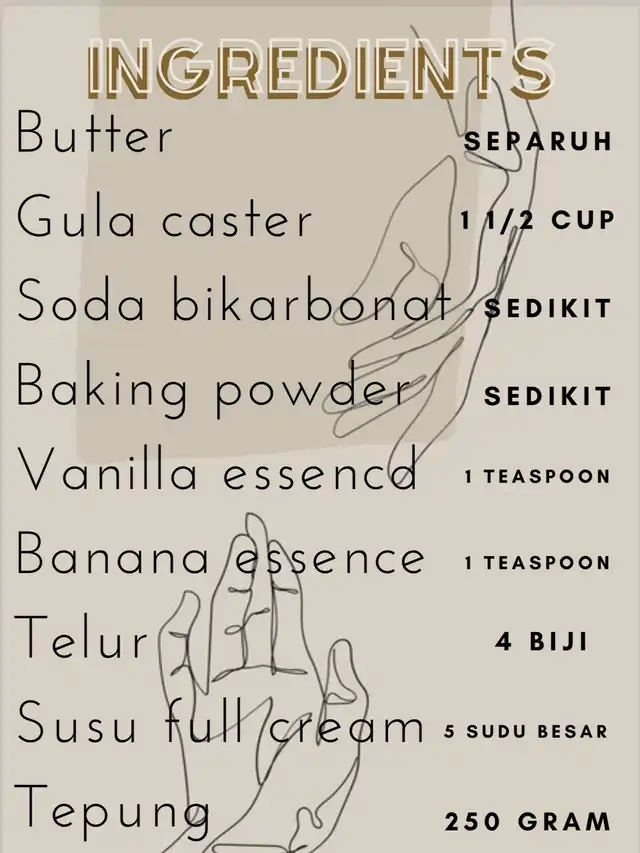 INGREDIENTS
Butter SEPARUH
Gula caster 1 1/2 CUP
Soda bikarbonat SEDIKIT
Baking powder SEDIKIT
Vanilla essencd 1 TEASPOON
Banana essence 1 TEASPOON
Telur 4 BIJI
Susu full cream 5 SUDU BESAR
Tepung 250 GRAM